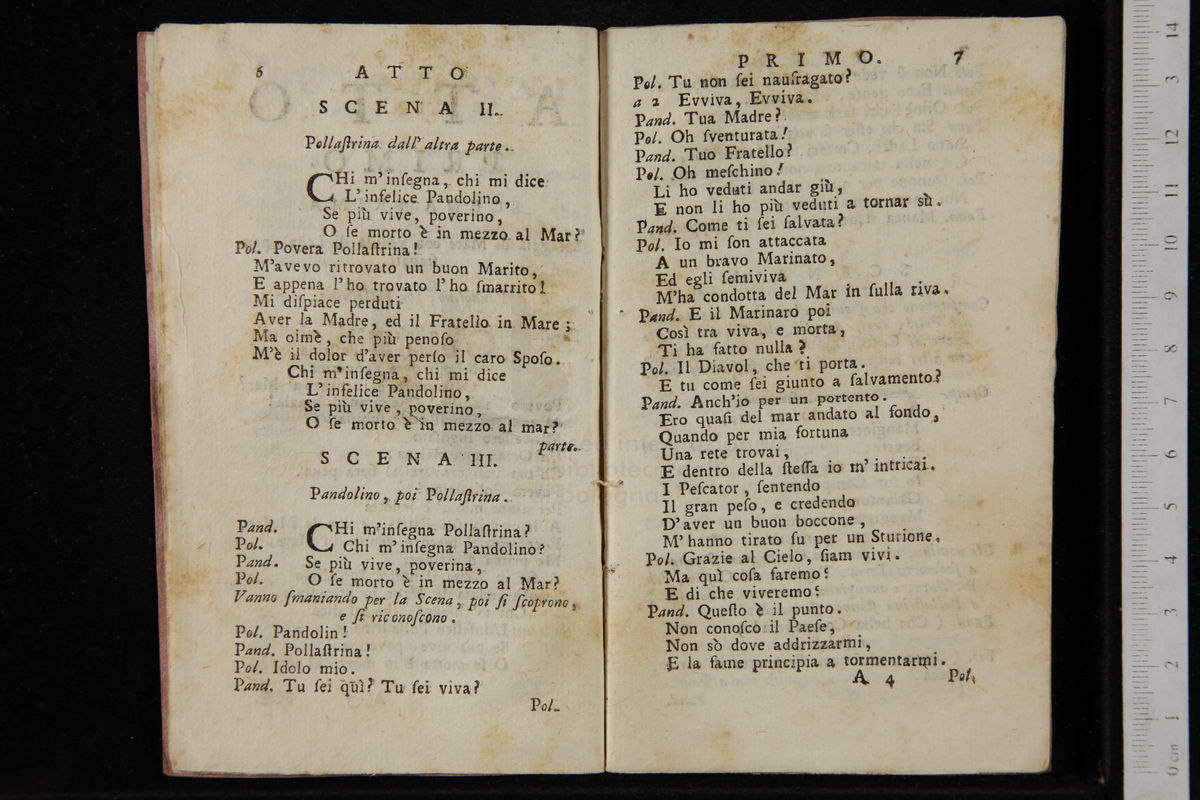 6 ATTO
SCENA II.
Pollaſtrina dall' altra parte.
CHi m'inſegna, chi mi dice
L'infelice Pandolino,
Se più vive, poverino,
O ſe morto è in mezzo al Mar?
Pol. Povera Pollaſtrina!
M'avevo ritrovato un buon Marito,
E appena l'ho trovato l'ho ſmarrito!
Mi diſpiace perduti
Aver la Madre, ed il Fratello in Mare;
Ma oimè, che più penoſo
M'è il dolor d'aver perſo il caro Spoſo.
Chi m'inſegna, chi mi dice
L'infelice Pandolino,
Se più vive, poverino,
O ſe morto è in mezzo al mar?
parte.
SCENA III.
Pandolino, poi Pollaſtrina.
Pand. CHi m'inſegna Pollaſtrina?
Pol. Chi m'inſegna Pandolino?
Pand. Se più vive, poverina,
Pol. O ſe morto è in mezzo al Mar?
Vanno ſmaniando per la Scena, poi ſi ſcoprono,
e ſi riconoſcono.
Pol. Pandolin!
Pand. Pollaſtrina!
Pol. Idolo mio.
Pand. Tu ſei quì? Tu ſei viva?
Pol.
PRIMO. 7
Pol. Tu non ſei naufragato?
a 2 Evviva, Evviva.
Pand. Tua Madre?
Pol. Oh ſventurata!
Pand. Tuo Fratello?
Pol. Oh meſchino!
Li ho veduti andar giù,
E non li ho più veduti a tornar sù.
Pand. Come ti ſei ſalvata?
Pol. Io mi ſon attaccata
A un bravo Marinato,
Ed egli ſemiviva
M'ha condotta del Mar in ſulla riva.
Pand. E il Marinaro poi
Così tra viva, e morta,
Ti ha fatto nulla?
Pol. Il Diavol, che ti porta.
E tu come ſei giunto a ſalvamento?
Pand. Anch'io per un portento.
Ero quaſi del mar andato al fondo,
Quando per mia fortuna
Una rete trovai,
E dentro della ſteſſa io m'intricai.
I Peſcator, ſentendo
Il gran peſo, e credendo
D'aver un buon boccone,
M'hanno tirato ſu per un Sturione.
Pol. Grazie al Cielo, ſiam vivi.
Ma quì coſa faremo?
E di che viveremo?
Pand. Queſto è il punto.
Non conoſco il Paeſe,
Non sò dove addrizzarmi,
E la fame principia a tormentarmi.
A 4 Pol.
0 cm 1 2 3 4 5 6 7 8 9 10 11 12 3 14